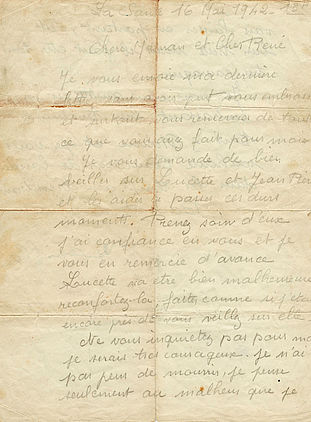 La Santé 16 Mai 1942 - 13h
Chere Maman et Cher René
Je vous envoie ma dernière
lettre avant vous embrass
et surtout vous remercier de tout
ce que vous avez fait pour moi
Je vous demande de bien
veiller sur Lucette et Jean Pier
et les aider a passer ces durs
moments. Prenez soin d'eux
j'ai confiance en vous et je
vous en remercie d'avance
Lucette va etre bien malheureuse
reconfortez-la, faites comme si j'étai
encore près de vous veillez sur elle
Ne vous inquiétez pas pour mo
je serais très courageux. je n'ai
pas peur de mourir, je pense
seulement au malheur que je